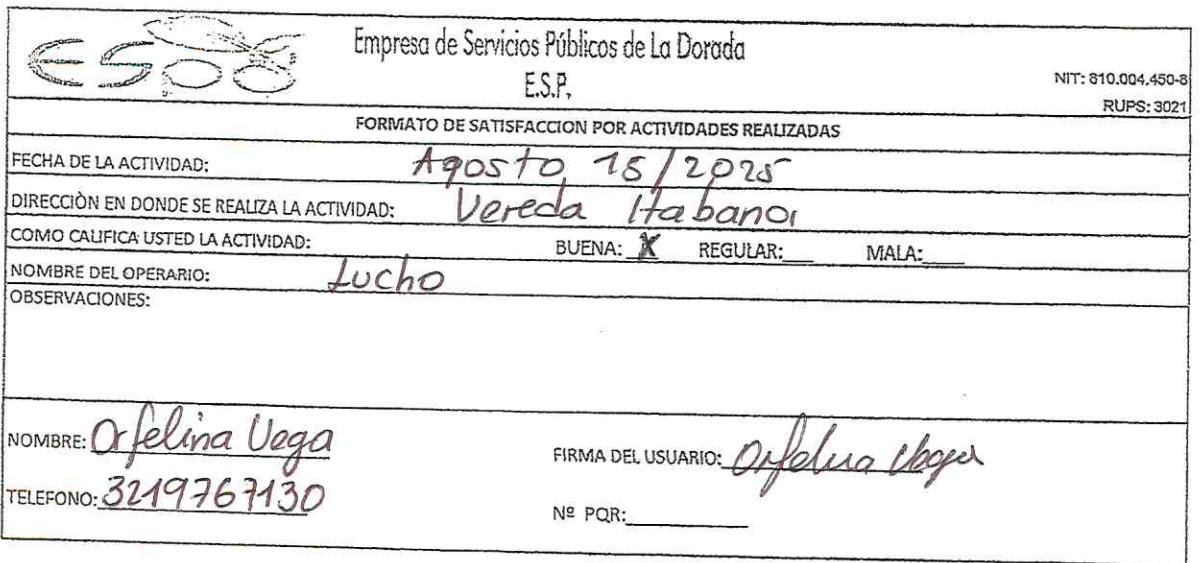 ESPD
Empresa de Servicios Públicos de La Dorada
E.S.P.
NIT: 810.004.450-8
RUPS: 3021
FORMATO DE SATISFACCION POR ACTIVIDADES REALIZADAS
FECHA DE LA ACTIVIDAD: Agosto 15/2025
DIRECCIÒN EN DONDE SE REALIZA LA ACTIVIDAD: Vereda Habana
COMO CALIFICA USTED LA ACTIVIDAD: BUENA: X REGULAR:___ MALA:___
NOMBRE DEL OPERARIO: Lucho
OBSERVACIONES:
NOMBRE: Orfelina Vega FIRMA DEL USUARIO: Orfelina Vega
TELEFONO: 3219767130 Nº PQR:________